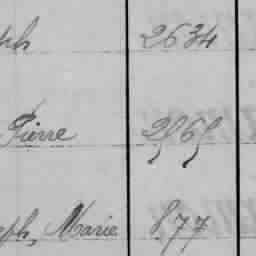 ph 2634
Pierre 2565
eph, Marie 877